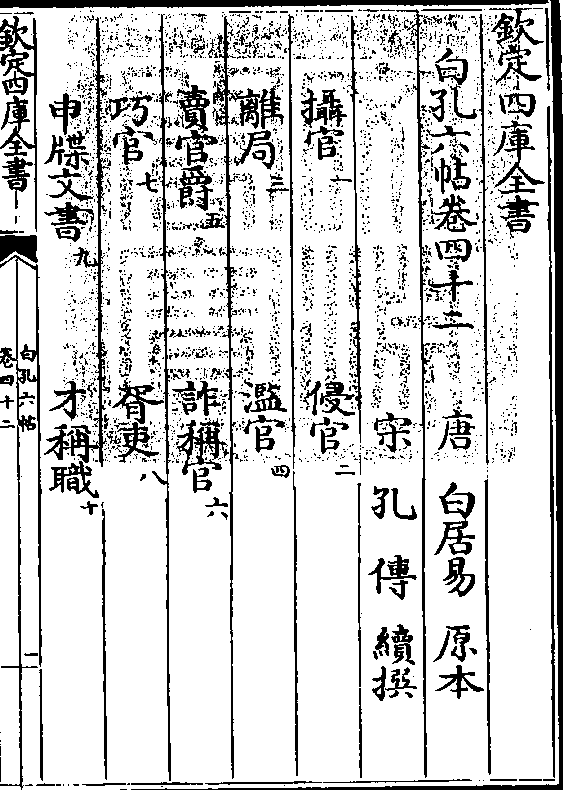 欽定四庫全書
白孔六帖卷四十二　唐　白居易　原本
宋　孔　傳　續撰
攝官一　侵官二
離局三　濫官四
賣官爵五　詐稱官六
巧官七　胥吏八
申牒文書九　才稱職十
欽定四庫全書
白孔六帖
卷四十二
一